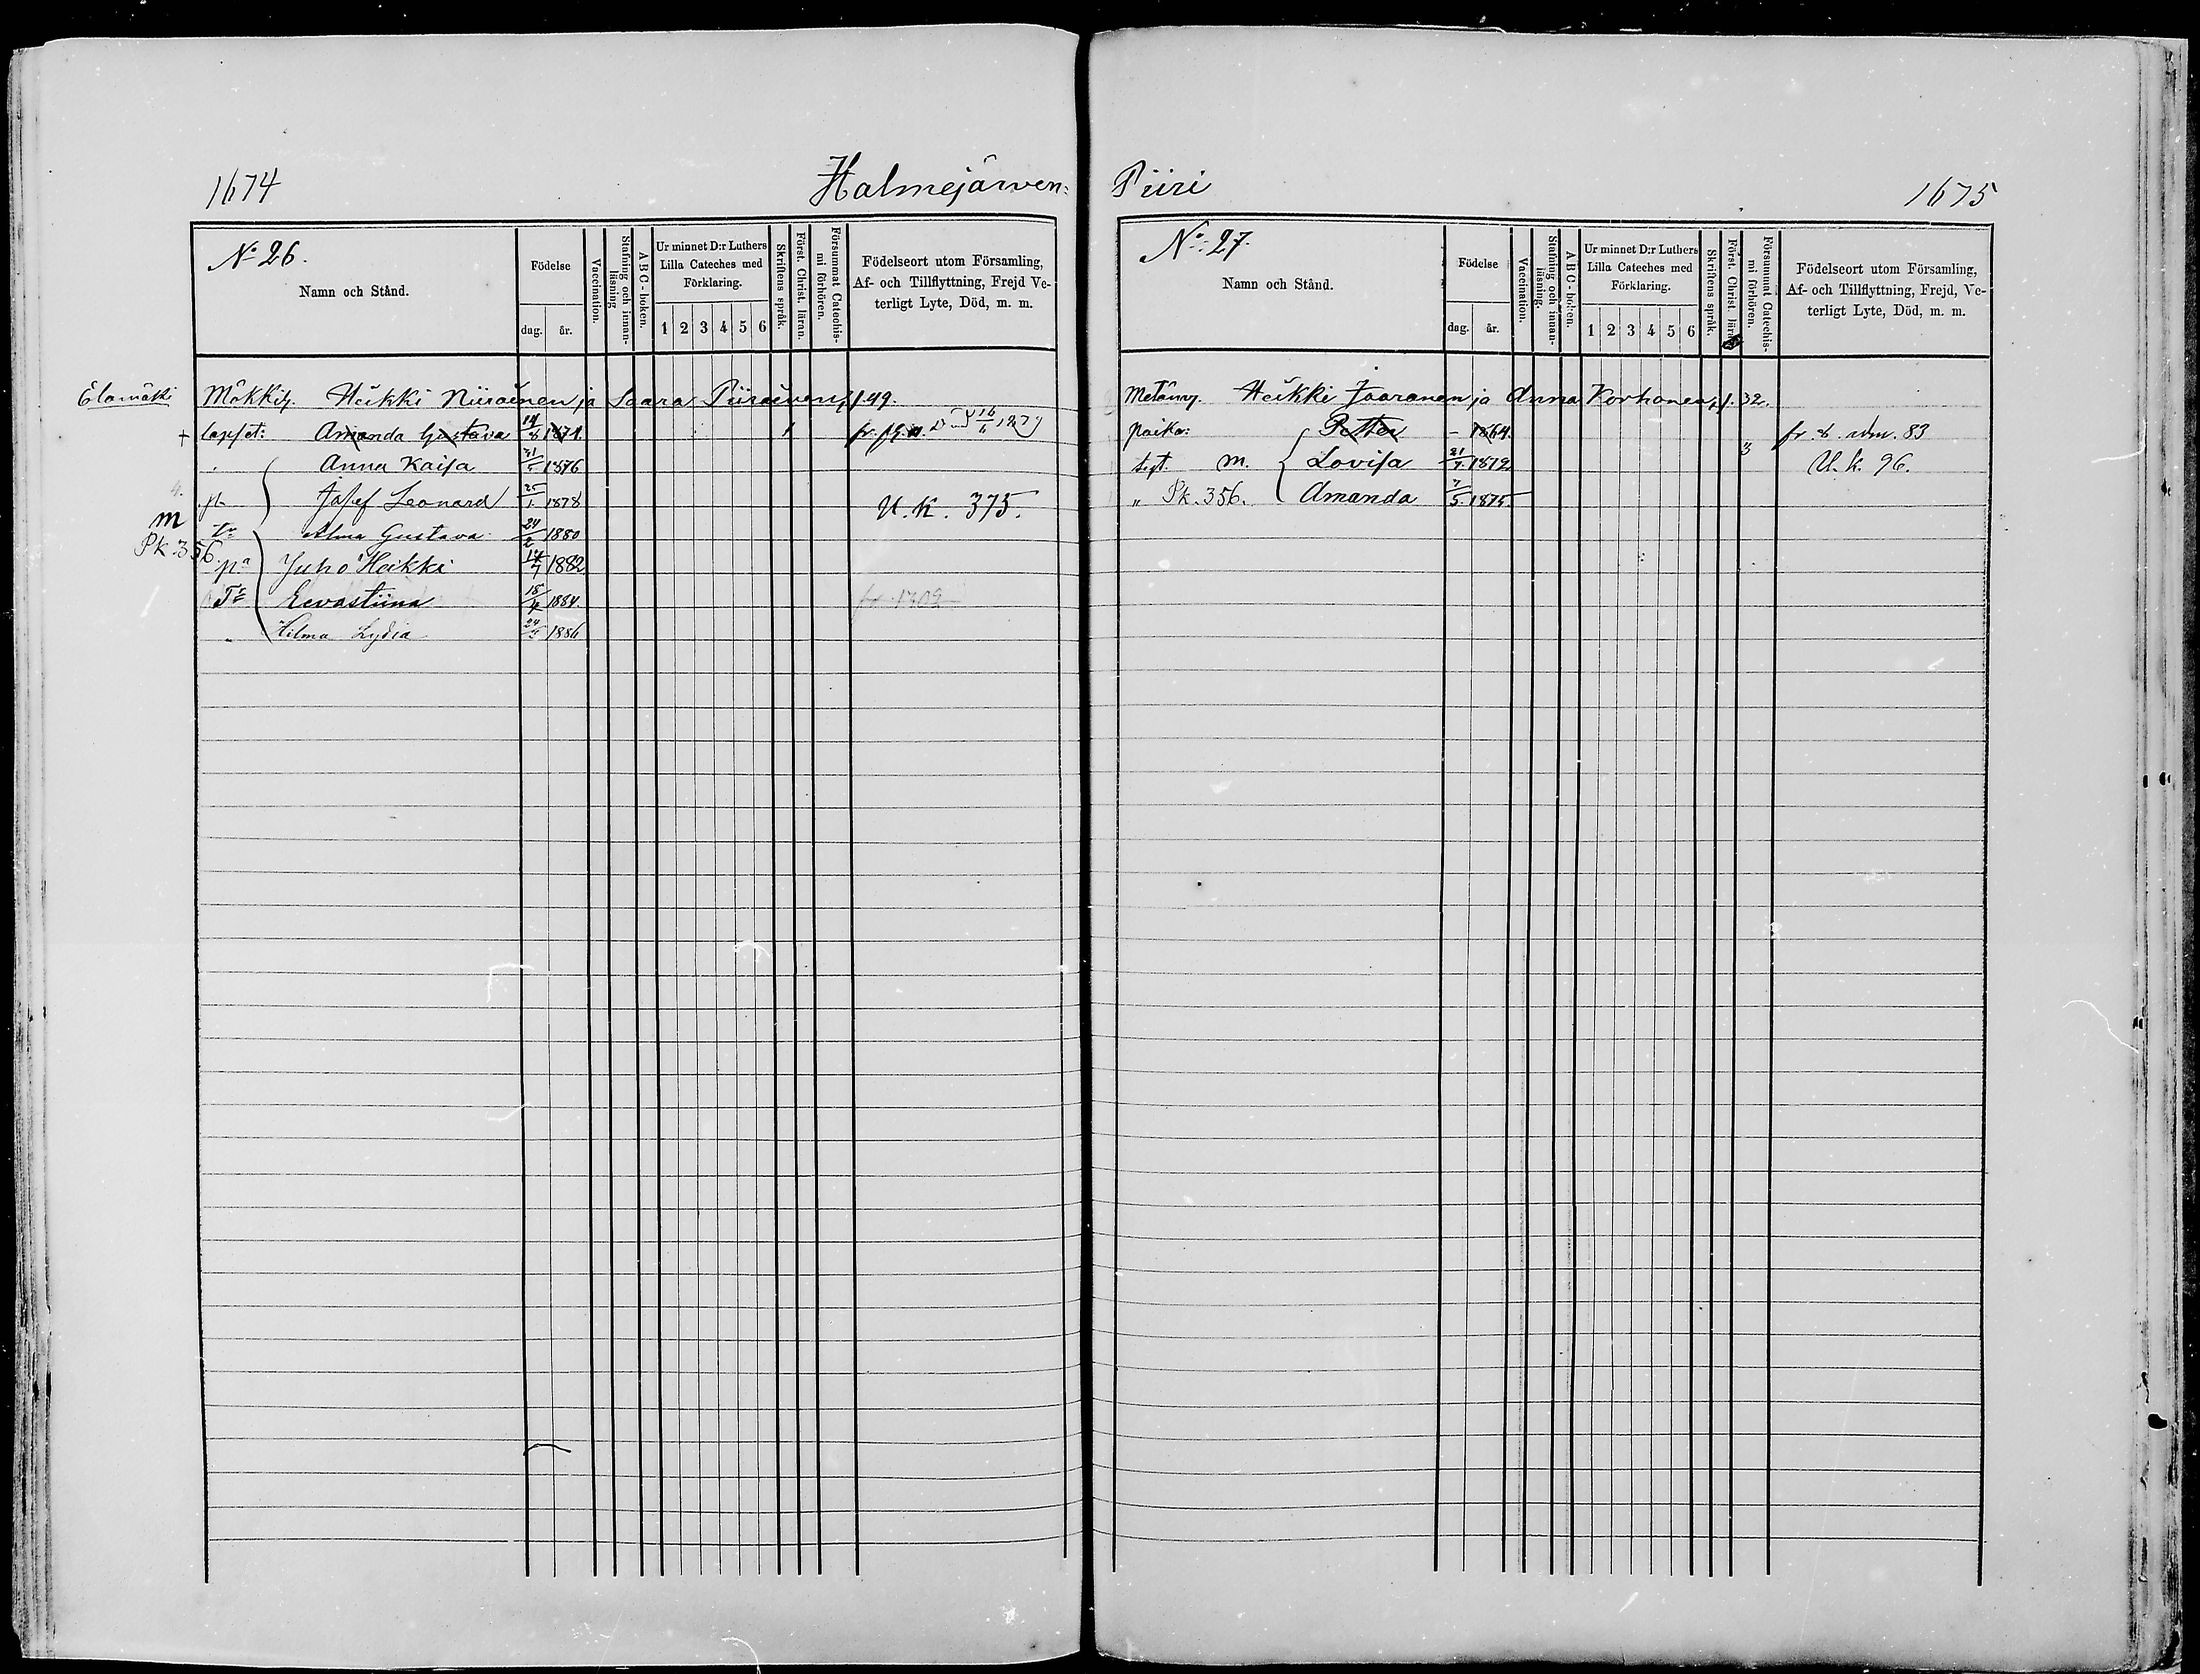 1674
Halmejärven:
Nº 26.
Namn och Stånd.
Födelse
dag. år.
Vaccination.
Stafning och innan-läsning
ABC-boken.
Ur minnet D:r Luthers Lilla Cateches med Förklaring.
1 2 3 4 5 6
Skriftens språk.
Först. Christ. läran.
Försummat Catechis-mi förhören.
Födelseort utom Församling,
Af- och Tillflyttning, Frejd Ve-
terligt Lyte, Död, m. m.
Mökkily. Heikki Niiranen ja Saara Piirainen, 149.
+ lapset: Amanda Gustava 14/8 1871. 1
Anna Kaisa 31/5 1876
p. Josef Leonard 25/1 1878 U. K. 375.
m tr Alma Gustava 24/2 1880
Pk. 356. pa Juho Heikki 1882
Tr Eevastiina 18/4 1884.
" Hilma Lydia 1886
Piiri
1675
Nº: 27.
Namn och Stånd.
Födelse
dag. år.
Vaccination.
Stafning och innan-läsning.
ABC-boken.
Ur minnet D:r Luthers Lilla Cateches med Förklaring.
1 2 3 4 5 6
Skriftens språk.
Först. Christ. läran
Försummat Catechis-mi förhören.
Födelseort utom Församling,
Af- och Tillflyttning, Frejd, Ve-
terligt Lyte, Död, m. m.
Heikki Jaaranen ja Anna Korhonen, 32.
poika: Petter – 1864. 83
m. Lovisa 1872 U. k. 96.
" Pk. 356. Amanda 7/5 1875.